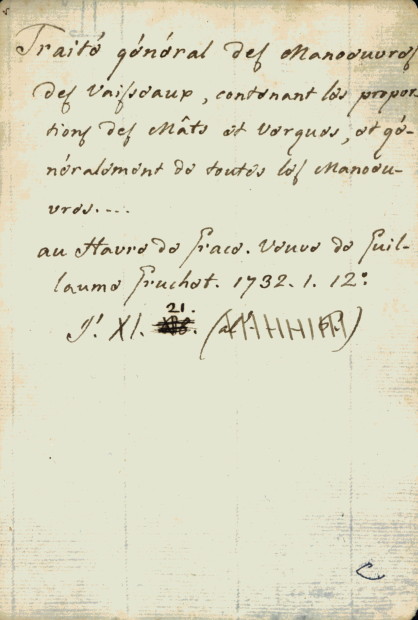 Traité général des Manoeuvres
des Vaisseaux, contenant les propor-
tions des Mâts et Vergues, et gé-
néralement de toutes les Manoeu-
vres....
au Havre de Grace. Veuve de Guil-
laume Gruchet. 1732. 1. 12º
21.
J! XI.